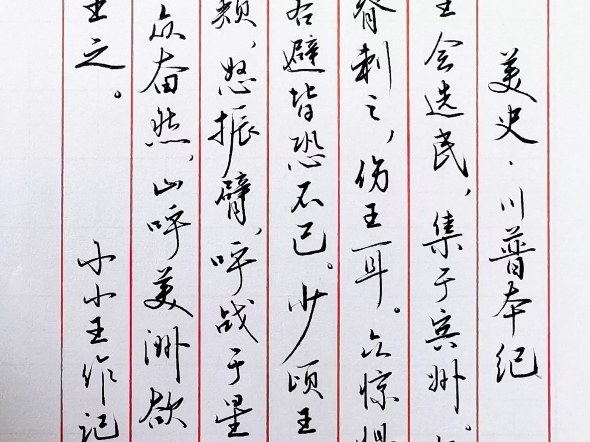 美史·川普本纪
王会选民，集于宾州。
脊刺之，伤王一耳。众惊惧
右避皆恐不已。少顷王
颊，怒振臂，呼战于星
众奋然，山呼美洲欲
王之。
小小王作记